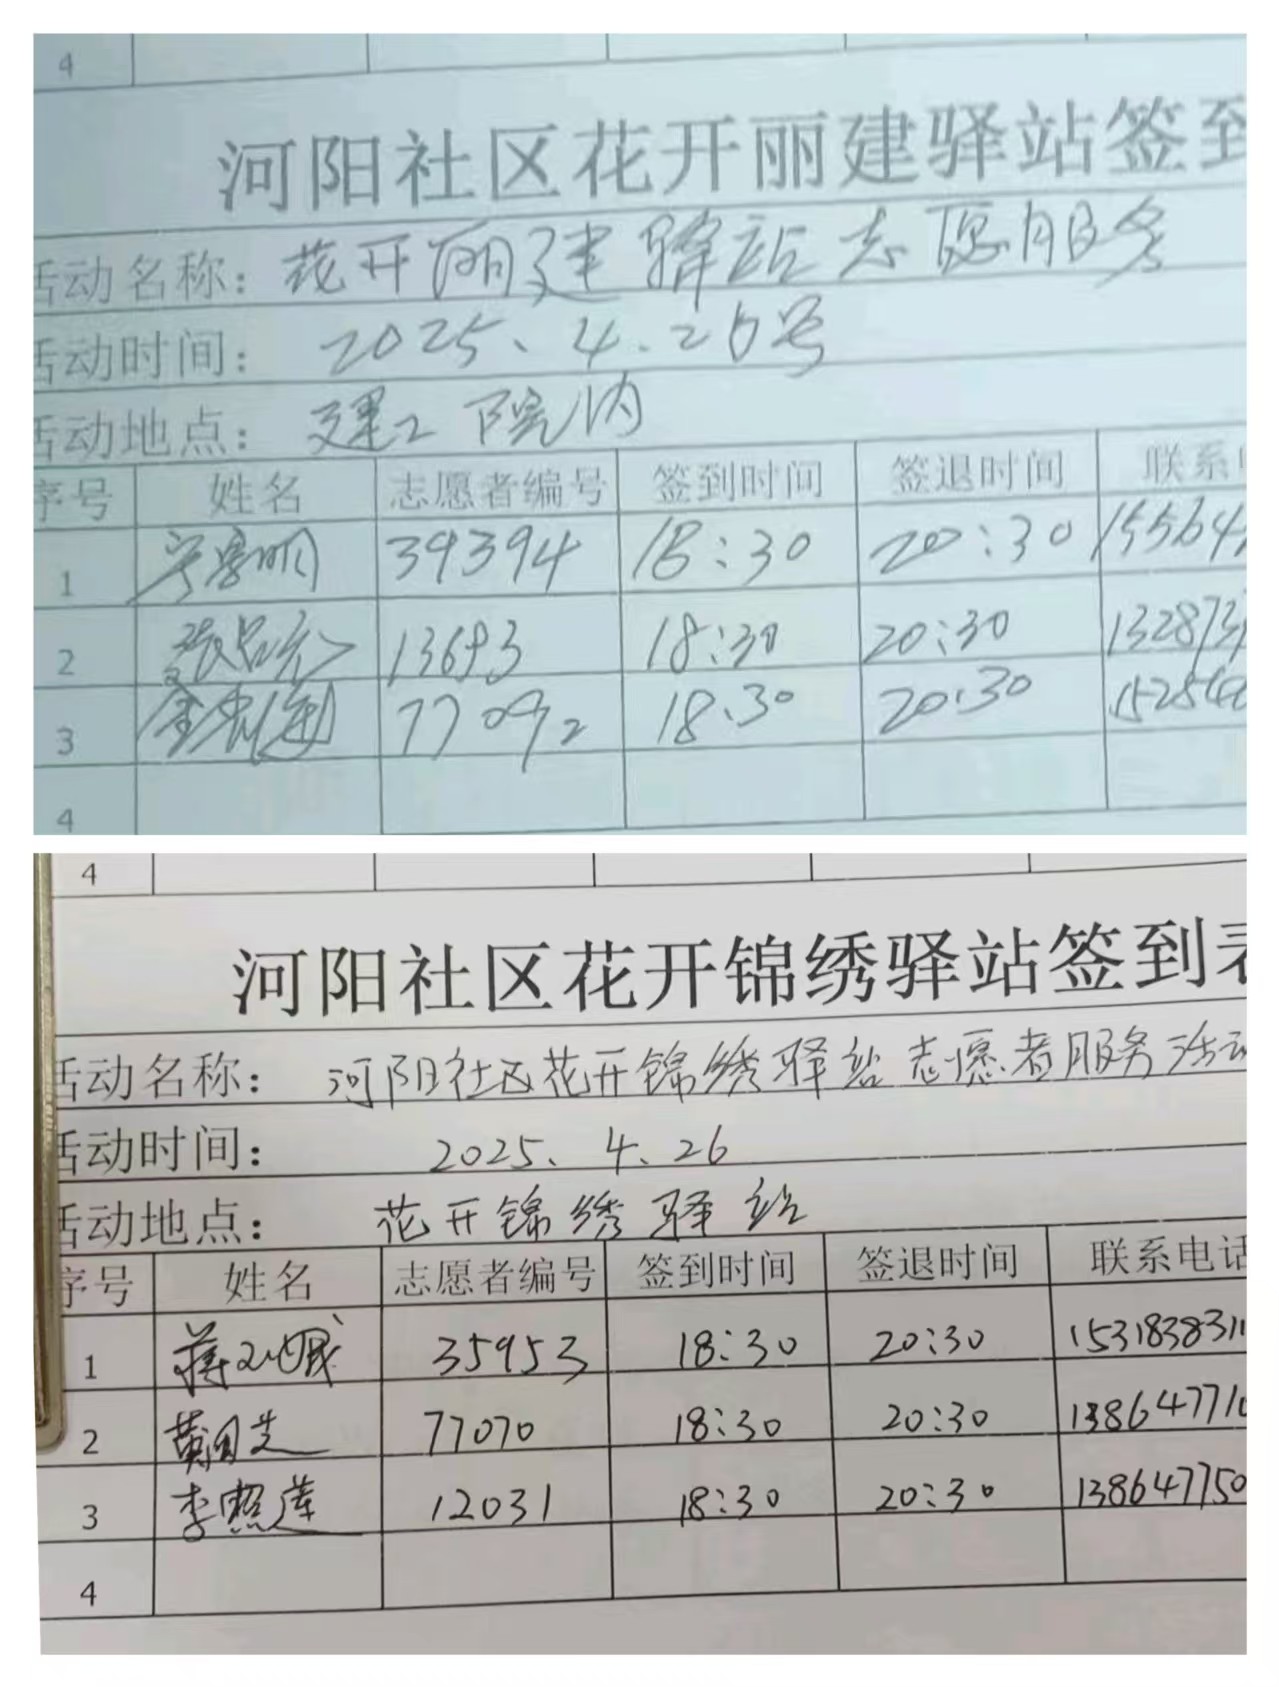 4
河阳社区花开丽建驿站签到
活动名称：花开丽建驿站志愿服务
活动时间：2025、4.26号
活动地点：建工院内
序号 姓名 志愿者编号 签到时间 签退时间 联系
1 39394 18:30 20:30 15564
2 13693 18:30 20:30 132873
3 77092 18:30 20:30 15254
4
4
河阳社区花开锦绣驿站签到表
活动名称：河阳社区花开锦绣驿站志愿者服务活动
活动时间：2025、4、26
活动地点：花开锦绣驿站
序号 姓名 志愿者编号 签到时间 签退时间 联系电话
1 35953 18:30 20:30 1531838311
2 77070 18:30 20:30 138647710
3 李照莲 12031 18:30 20:30 138647750
4